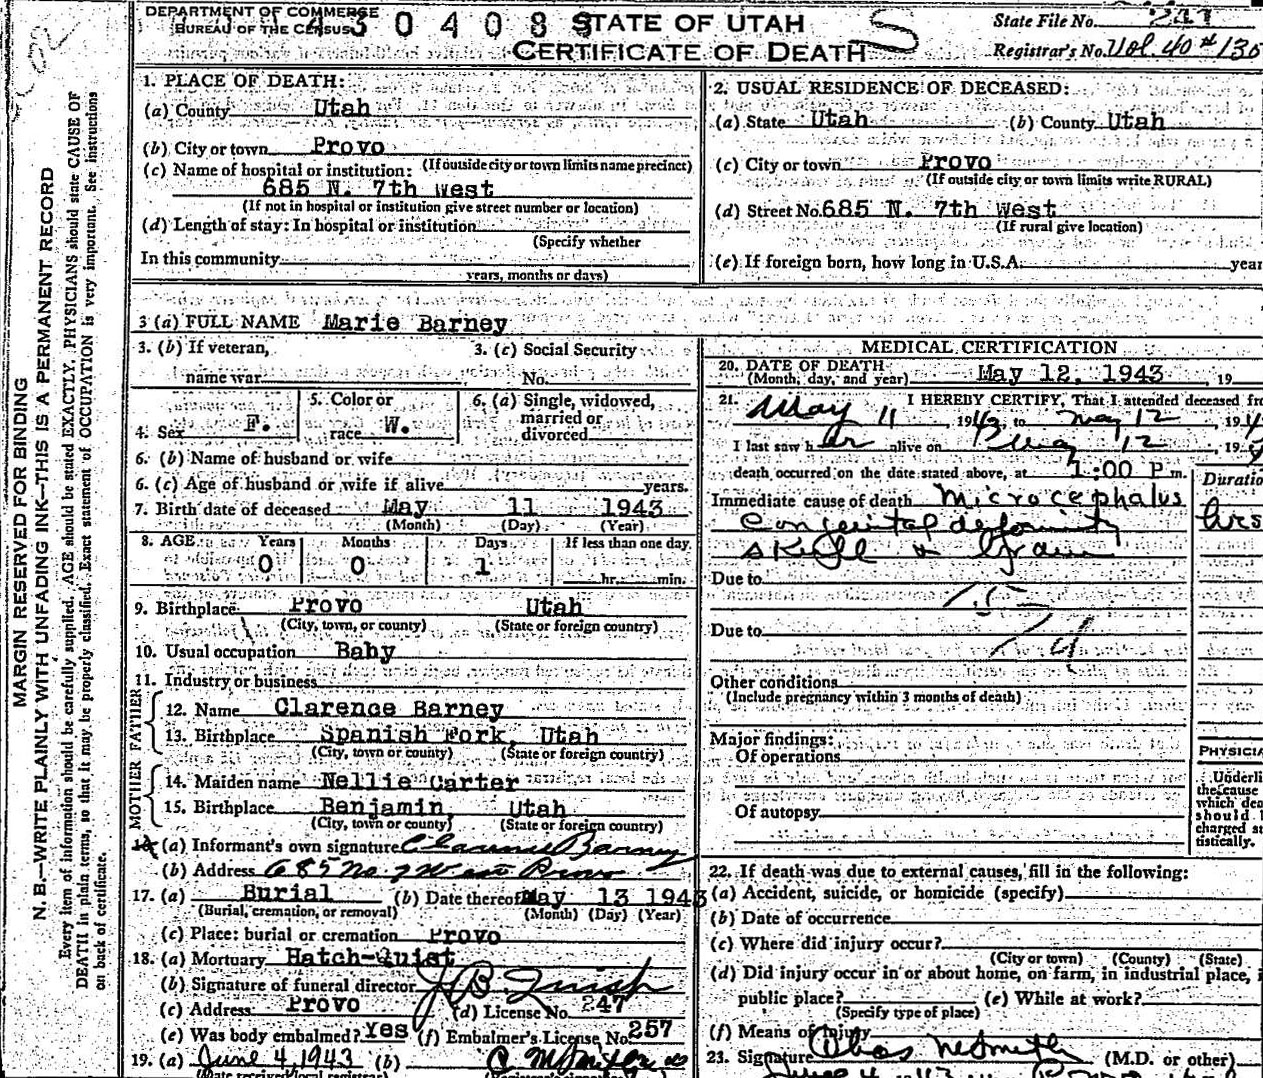 DEPARTMENT OF COMMERCE
BUREAU OF THE CENSUS
3 0 4 0 8 9
STATE OF UTAH
CERTIFICATE OF DEATH
S
State File No.
Registrar's No. Vol. 40 # 130
MARGIN RESERVED FOR BINDING
N. B.—WRITE PLAINLY WITH UNFADING INK—THIS IS A PERMANENT RECORD
Every item of information should be carefully supplied. AGE should be stated EXACTLY. PHYSICIANS should state CAUSE OF
DEATH in plain terms, so that it may be properly classified. Exact statement of OCCUPATION is very important. See instructions
on back of certificate.
1. PLACE OF DEATH:
(a) County Utah
(b) City or town Provo
(If outside city or town limits name precinct)
(c) Name of hospital or institution:
685 N. 7th West
(If not in hospital or institution give street number or location)
(d) Length of stay: In hospital or institution
(Specify whether
In this community
years, months or days)
2. USUAL RESIDENCE OF DECEASED:
(a) State Utah (b) County Utah
(c) City or town Provo
(If outside city or town limits write RURAL)
(d) Street No. 685 N. 7th West
(If rural give location)
(e) If foreign born, how long in U.S.A. year
3 (a) FULL NAME Marie Barney
3. (b) If veteran, 3. (c) Social Security
name war No.
4. Sex F. 5. Color or race W. 6. (a) Single, widowed, married or divorced
6. (b) Name of husband or wife
6. (c) Age of husband or wife if alive years.
7. Birth date of deceased May 11 1943
(Month) (Day) (Year)
8. AGE Years Months Days If less than one day
0 0 1 hr. min.
9. Birthplace Provo Utah
(City, town, or county) (State or foreign country)
10. Usual occupation Baby
11. Industry or business
FATHER
12. Name Clarence Barney
13. Birthplace Spanish Fork, Utah
(City, town or county) (State or foreign country)
MOTHER
14. Maiden name Nellie Carter
15. Birthplace Benjamin, Utah
(City, town or county) (State or foreign country)
16. (a) Informant's own signature Clarence Barney
(b) Address 685 No 7 West Provo
17. (a) Burial (b) Date thereof May 13 1943
(Burial, cremation, or removal) (Month) (Day) (Year)
(c) Place: burial or cremation Provo
18. (a) Mortuary Hatch-Quist
(b) Signature of funeral director
(c) Address Provo (d) License No. 247
(e) Was body embalmed? Yes (f) Embalmer's License No. 257
19. (a) June 4, 1943 (b)
(Date received local registrar)
MEDICAL CERTIFICATION
20. DATE OF DEATH
(Month, day, and year) May 12, 1943, 19
21. I HEREBY CERTIFY, That I attended deceased fr
May 11, 1943, to May 12, 194
I last saw her alive on May 12, 19
death occurred on the date stated above, at 1:00 P m.
Immediate cause of death Microcephalus
Congenital deformity
skull & brain
Duratio
hrs
Due to
Due to
Other conditions
(Include pregnancy within 3 months of death)
Major findings:
Of operations
Of autopsy
PHYSICIA
Underli
the cause
which dea
should b
charged st
tistically.
22. If death was due to external causes, fill in the following:
(a) Accident, suicide, or homicide (specify)
(b) Date of occurrence
(c) Where did injury occur?
(City or town) (County) (State)
(d) Did injury occur in or about home, on farm, in industrial place, i
public place? (e) While at work?
(Specify type of place)
(f) Means of Injury
23. Signature (M.D. or other)